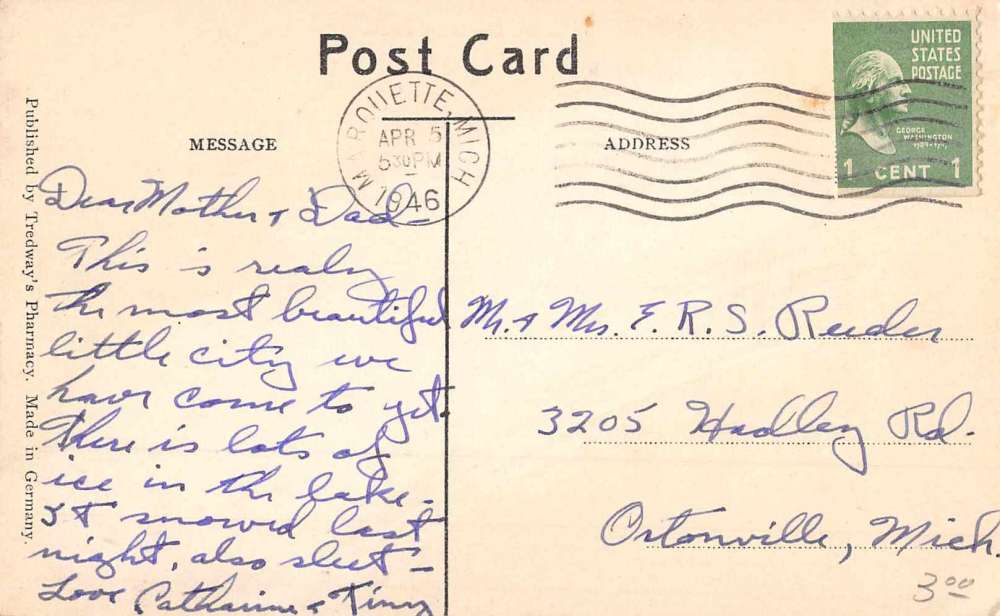 Post Card
MESSAGE
ADDRESS
MARQUETTE, MICH
APR 5
5 30 PM
1946
UNITED
STATES
POSTAGE
GEORGE
WASHINGTON
1789-1797
1 CENT 1
Published by Tredway's Pharmacy. Made in Germany.
Dear Mother & Dad
This is realy
the most beautiful
little city we
have come to yet.
There is lots of
ice in the lake.
It snowed last
night, also sleet –
Love Catharine & Tinny
Mr. & Mrs. E. R. S. Reeder
3205 Hadley Rd.
Ortonville, Mich.
3.00